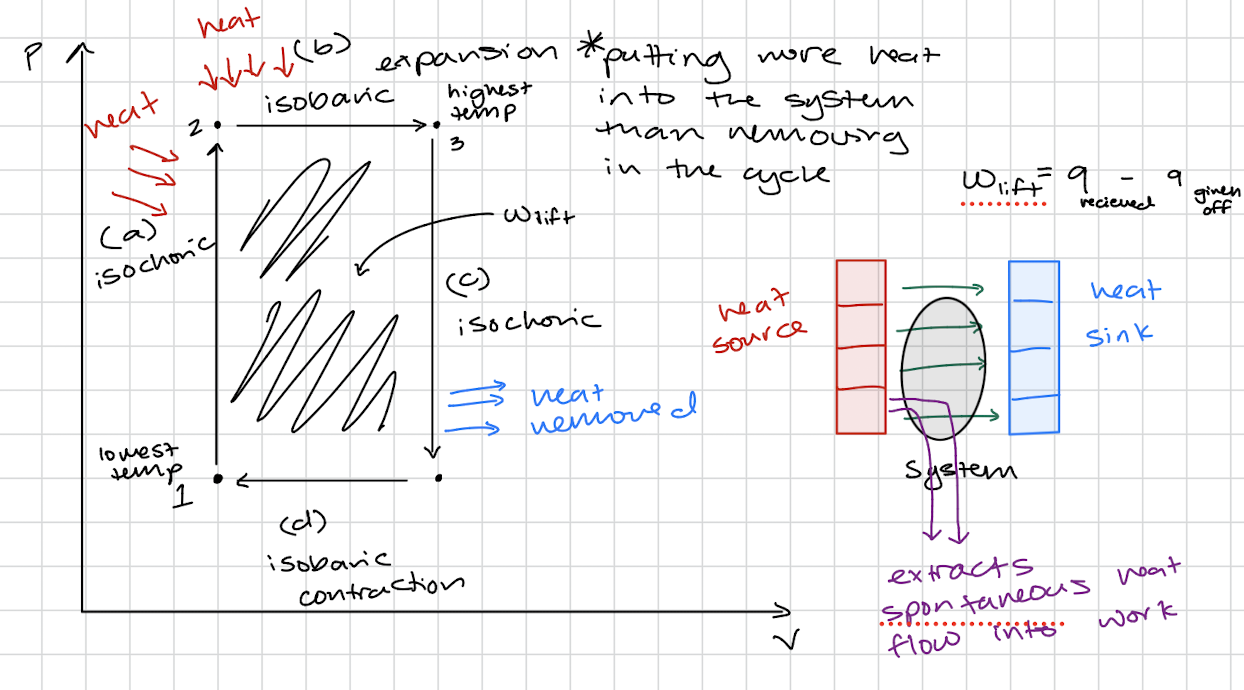 P
heat
(b)
expansion
*putting more heat
into the system
than removing
in the cycle
heat
isobaric
highest
temp
2
3
w lift = q recieved - q given off
(a)
isochoric
w lift
(c)
isochoric
heat
source
heat
sink
heat
removed
lowest
temp
1
system
(d)
isobaric
contraction
extracts
spontaneous heat
flow into work
V